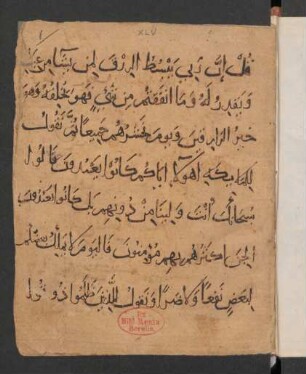 XLV
قل إن ربي يبسط الرزق لمن يشا من عباده
ويقدر له وما انفقتم من شي فهو يخلفه وهو
خير الرازقين ويوم نحشرهم جميعا ثم نقول
للملايكه أهولا اياكم كانوا يعبدون قالوا
سبحانك أنت ولينا من دونهم بل كانوا يعبدون
الجن اكثرهم بهم مومنون فاليوم لا يملك
لبعض نفعا ولا ضرا ونقول للذين ظلموا ذوقوا